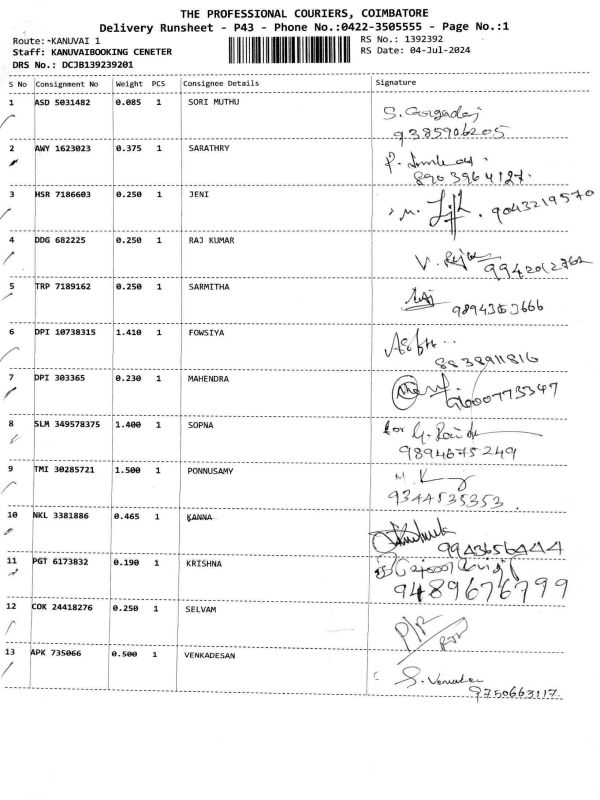 THE PROFESSIONAL COURIERS, COIMBATORE
Delivery Runsheet - P43 - Phone No.:0422-3505555 - Page No.:1
Route: KANUVAI 1 RS No.: 1392392
Staff: KANUVAIBOOKING CENETER RS Date: 04-Jul-2024
DRS No.: DCJB139239201
S No Consignment No Weight PCS Consignee Details Signature
1 ASD 5031482 0.085 1 SORI MUTHU
9385906205
2 AWY 1623023 0.375 1 SARATHRY
8903964127.
3 HSR 7186603 0.250 1 JENI
9043219570
4 DDG 682225 0.250 1 RAJ KUMAR
V. Raja
5 TRP 7189162 0.250 1 SARMITHA
6 DPI 10738315 1.410 1 FOWSIYA
8838911816
7 DPI 303365 0.230 1 MAHENDRA
8 SLM 349578375 1.400 1 SOPNA for
9894675249
9 TMI 30285721 1.500 1 PONNUSAMY
9344535353
10 NKL 3381886 0.465 1 KANNA
9943656444
11 PGT 6173832 0.190 1 KRISHNA
9489676799
12 COK 24418276 0.250 1 SELVAM
13 APK 735066 0.500 1 VENKADESAN
9750663117